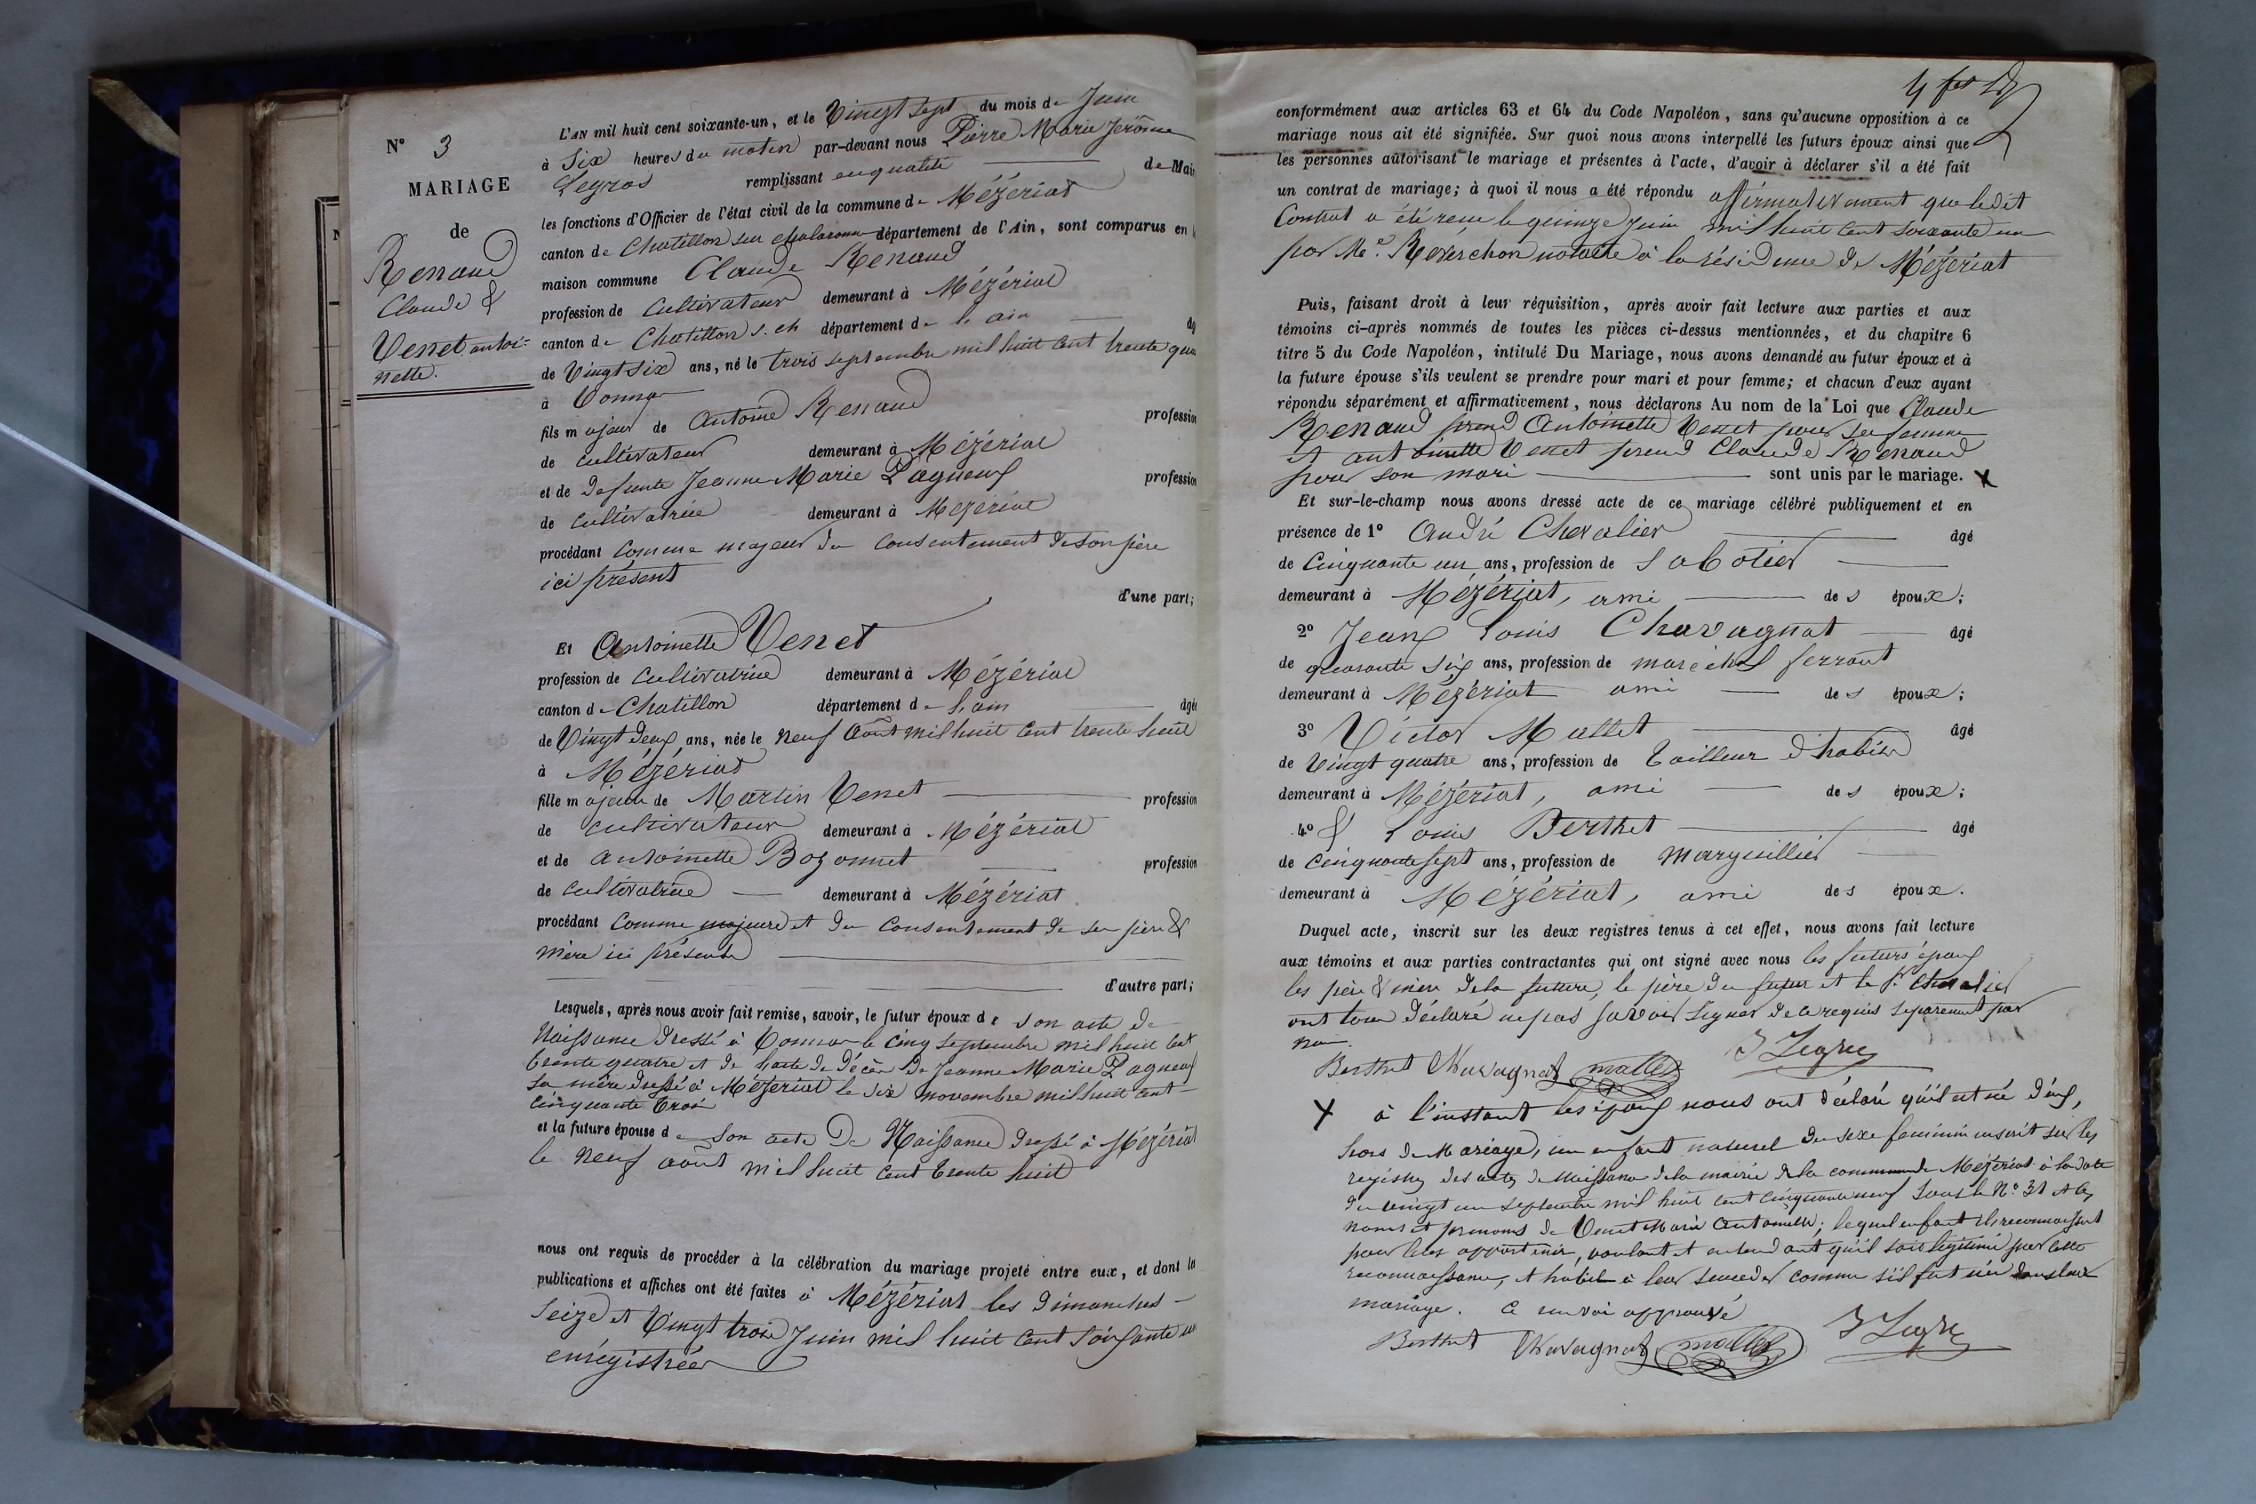 N° 3
MARIAGE
de
Renaud
Claude &
Venet antoi-
nette.
L'AN mil huit cent soixante-un, et le Vingt sept du mois de Juin
à Six heures du matin par-devant nous Pierre Marie Jerôme
remplissant en qualité de Mai
les fonctions d'Officier de l'état civil de la commune de Mézériat
canton de Chatillon sur chalaronne département de l'Ain, sont comparus en l
maison commune Claude Renaud
profession de Cultivateur demeurant à Mézériat
canton de Chatillon s. ch département de l'ain âg
de Vingt Six ans, né le trois septembre mil huit cent trente qua
à Vonnas
fils majeur de Antoine Renaud profession
de cultivateur demeurant à Mézériat
et de defunte Jeanne Marie Pagneux profession
de cultivatrice demeurant à Mézériat
procédant comme majeur du consentement de son père
ici présent
d'une part;
Et Antoinette Venet
profession de cultivatrice demeurant à Mézériat
canton de Chatillon département de l'ain âgée
de Vingt deux ans, née le neuf Août mil huit cent trente huit
à Mézériat
fille majeure de Martin Venet profession
de cultivateur demeurant à Mézériat
et de antoinette Bozonnet profession
de cultivatrice demeurant à Mézériat
procédant comme majeure et du consentement de ses père &
mère ici présents
d'autre part;
Lesquels, après nous avoir fait remise, savoir, le futur époux de son acte de
Naissance dressé à Vonnas le cinq septembre mil huit cent
trente quatre et de l'acte de décès de Jeanne Marie Pagneux
sa mère dressé à Mézériat le six novembre mil huit cent
cinquante trois
et la future épouse de son acte de Naissance dressé à Mézériat
le neuf août mil huit cent trente huit
nous ont requis de procéder à la célébration du mariage projeté entre eux, et dont les
publications et affiches ont été faites à Mézériat les dimanches
seize et Vingt trois Juin mil huit cent soixante un
enrégistrées
conformément aux articles 63 et 64 du Code Napoléon, sans qu'aucune opposition à ce
mariage nous ait été signifiée. Sur quoi nous avons interpellé les futurs époux ainsi que
les personnes autorisant le mariage et présentes à l'acte, d'avoir à déclarer s'il a été fait
un contrat de mariage; à quoi il nous a été répondu affirmativement que ledit
Contrat a été reçu le quinze Juin mil huit cent soixante un
par Me. Reverchon notaire à la résidence de Mézériat
Puis, faisant droit à leur réquisition, après avoir fait lecture aux parties et aux
témoins ci-après nommés de toutes les pièces ci-dessus mentionnées, et du chapitre 6
titre 5 du Code Napoléon, intitulé Du Mariage, nous avons demandé au futur époux et à
la future épouse s'ils veulent se prendre pour mari et pour femme; et chacun d'eux ayant
répondu séparément et affirmativement, nous déclarons Au nom de la Loi que Claude
Renaud prend Antoinette Venet pour sa femme
et antoinette Venet prend Claude Renaud
pour son mari sont unis par le mariage. X
Et sur-le-champ nous avons dressé acte de ce mariage célébré publiquement et en
présence de 1° André Chevalier âgé
de Cinquante un ans, profession de Sabotier
demeurant à Mézériat, ami des époux;
2° Jean Louis Chavagnat âgé
de quarante six ans, profession de maréchal ferrant
demeurant à Mézériat ami des époux;
3° Victor Mallet âgé
de Vingt quatre ans, profession de tailleur d'habits
demeurant à Mézériat, ami des époux;
4° & Louis Berthet âgé
de Cinquante sept ans, profession de Marguillier
demeurant à Mézériat, ami des époux.
Duquel acte, inscrit sur les deux registres tenus à cet effet, nous avons fait lecture
aux témoins et aux parties contractantes qui ont signé avec nous les futurs époux
les père & mère de la future, le père du futur et le Sr Chevalier
ont tous déclaré ne pas savoir signer de ce requis séparement par
nous.
Berthet Chavagnat mallet
X à l'instant les époux nous ont déclaré qu'il est né d'eux,
hors de Mariage, un enfant naturel du sexe feminin inscrit sur les
registres des actes de Naissance de la mairie de la commune de Mézériat à la date
du vingt un septembre mil huit cent cinquante neuf sous le N° 31 et les
noms et prenoms de Venet Marie Antoinette; lequel enfant ils reconnaissent
pour leur appartenir, voulant et entendant qu'il soit légitimé par cette
reconnaissance, et habile à leur succeder comme s'il fut né dans leur
mariage. Ce renvoi approuvé
Berthet Chavagnat mallet